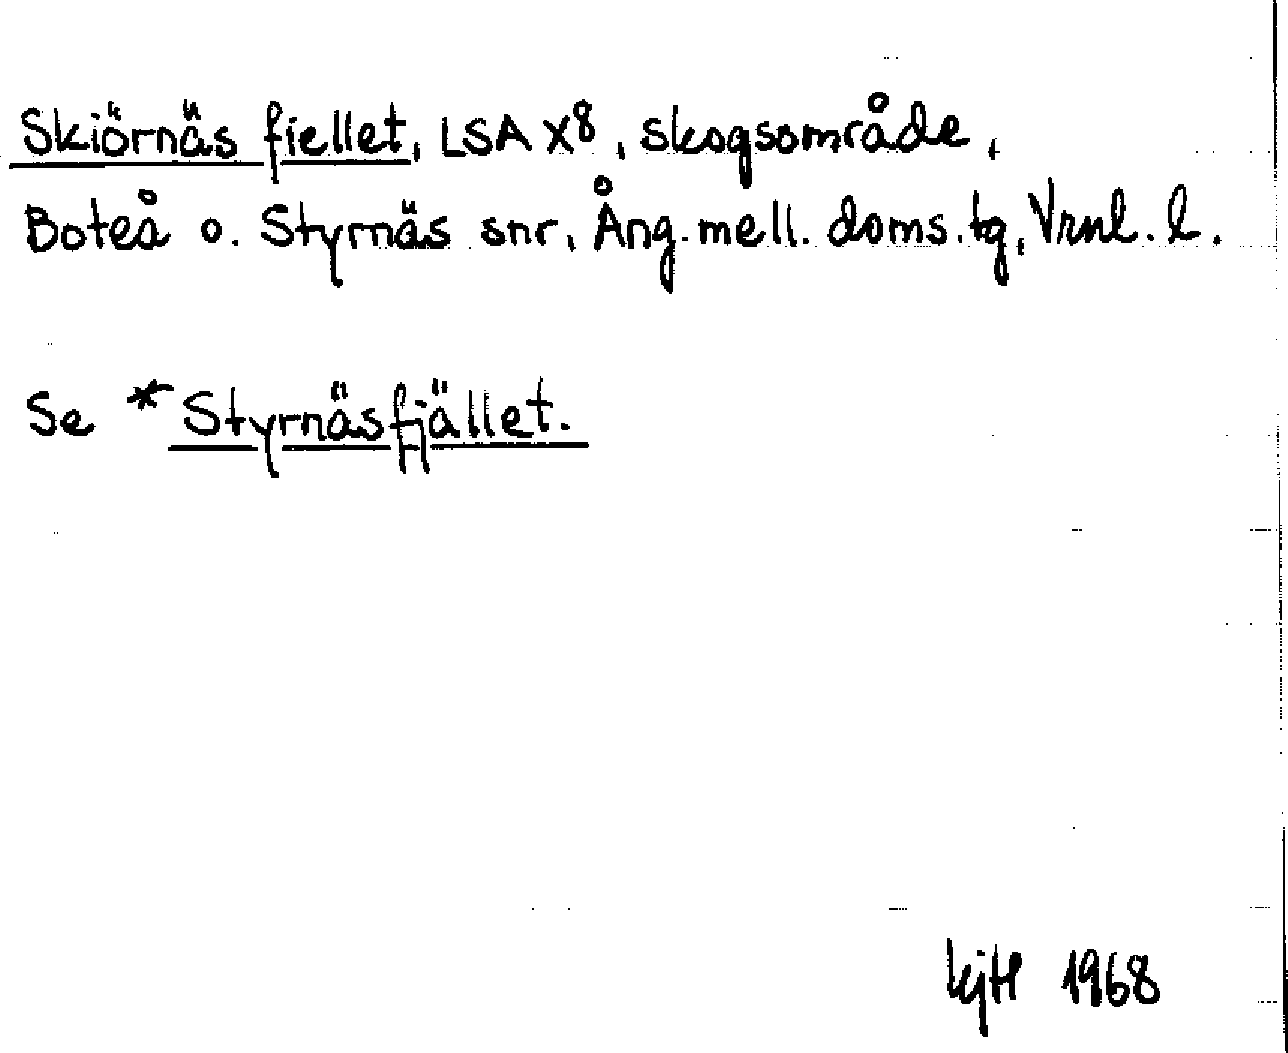 Skiörnäs fiellet, LSA X8, skogsområde,
Boteå o. Styrnäs snr, Ång. mell. doms. tg, Vrnl. l.
Se *Styrnäsfjället.
1968